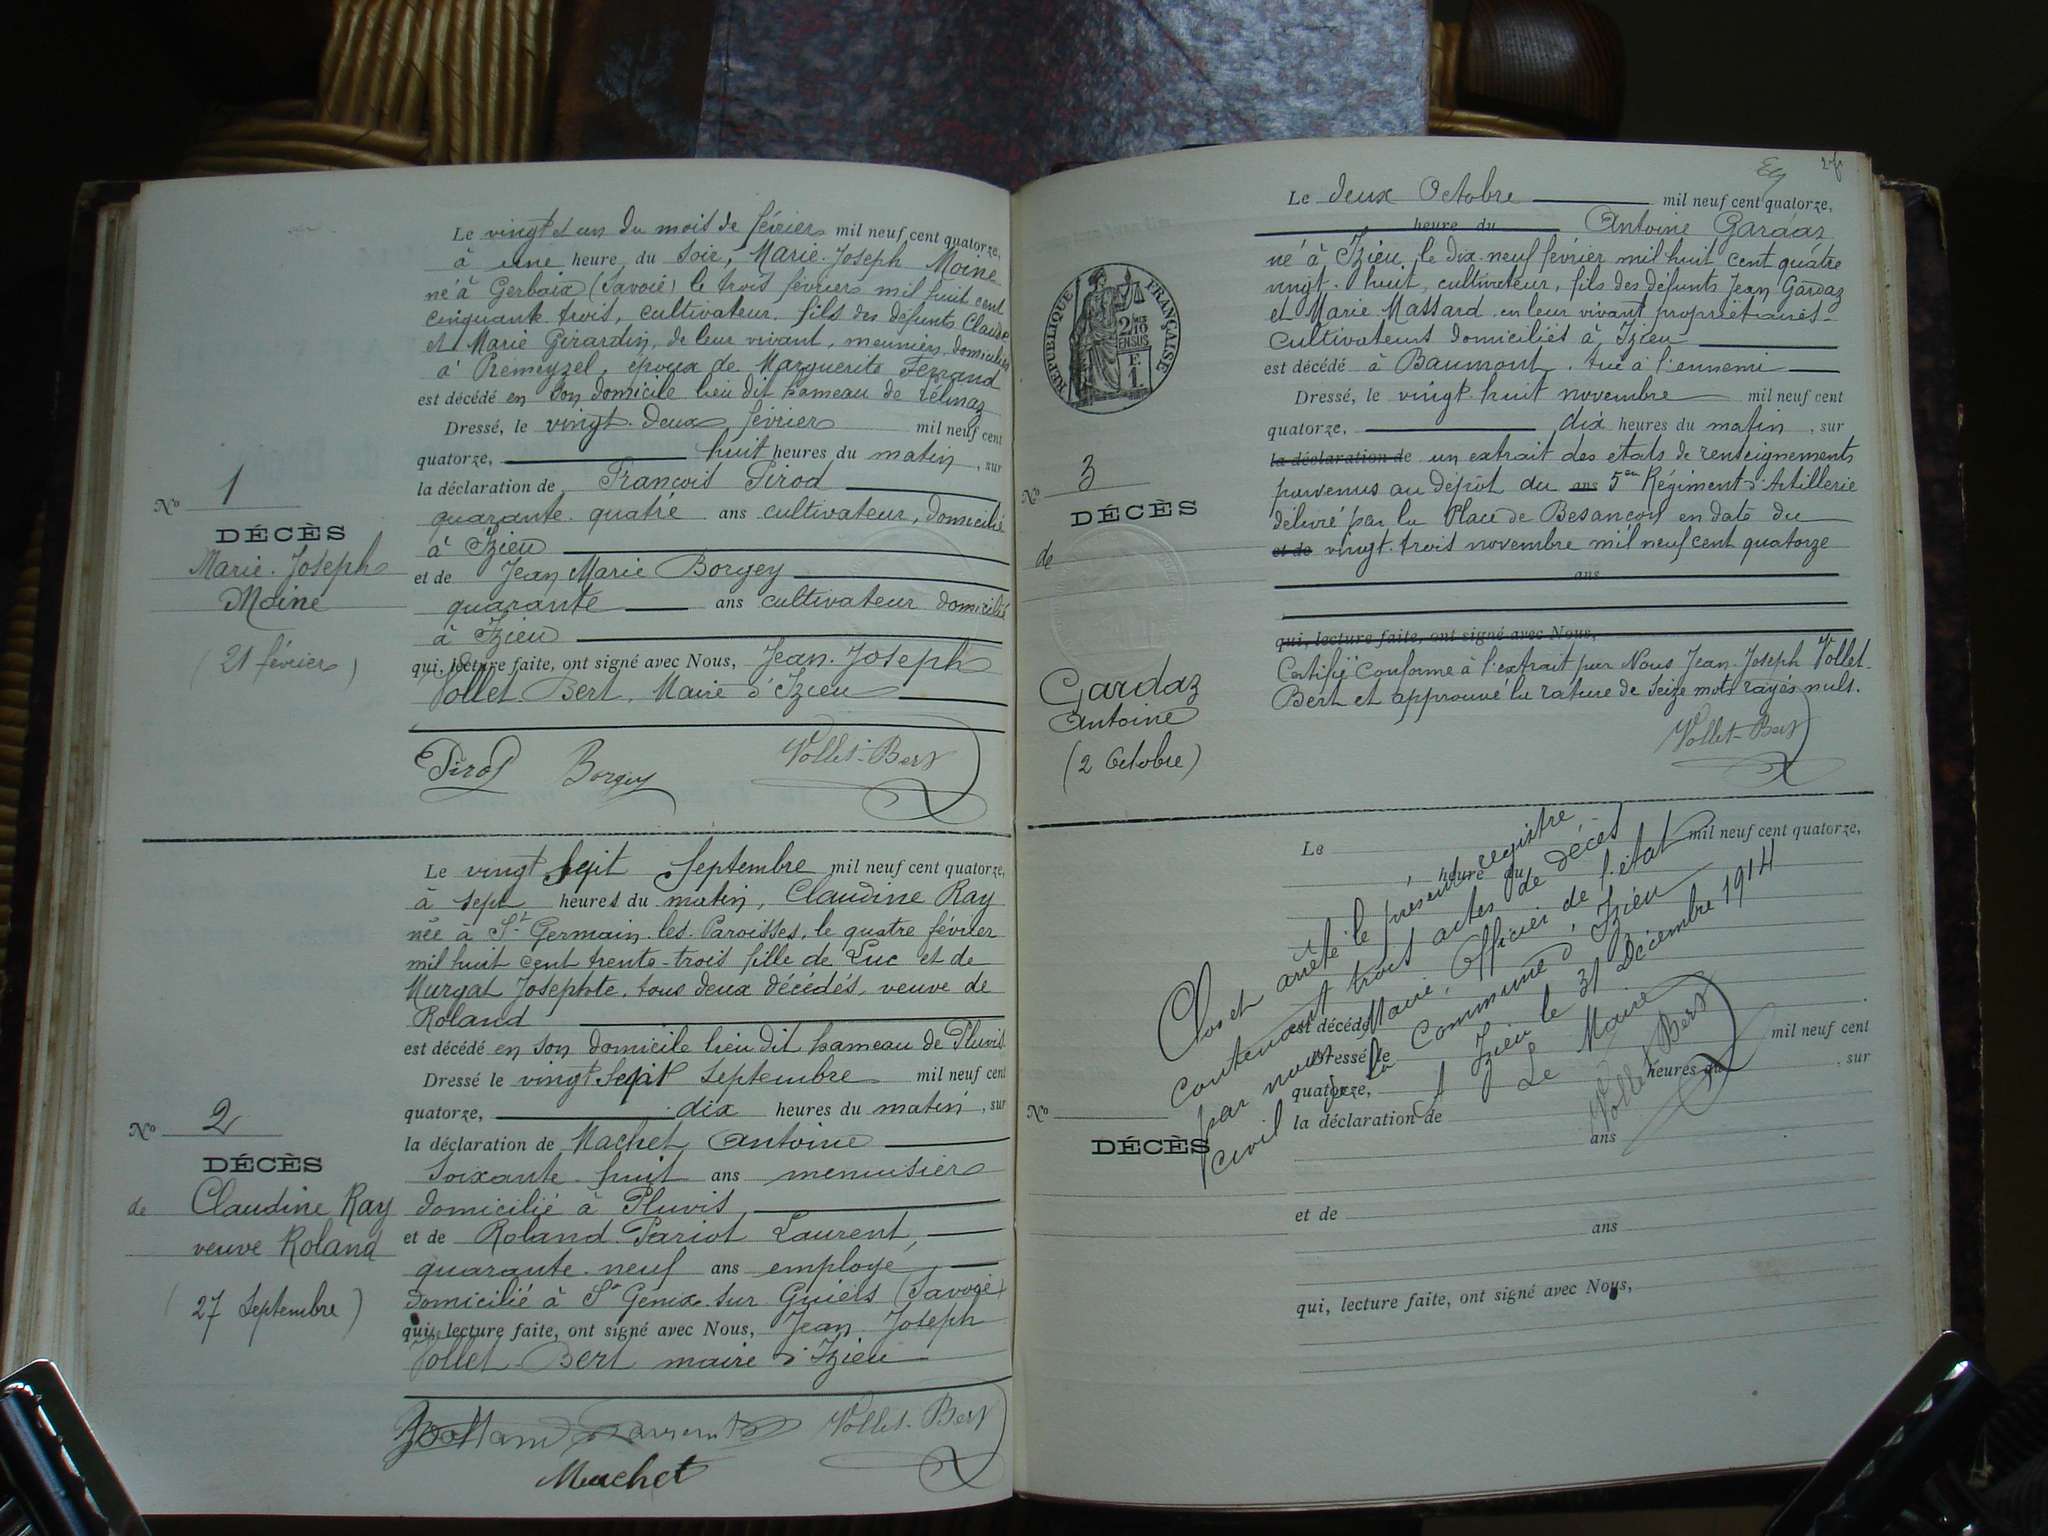 Le vingt et un du mois de février mil neuf cent quatorze,
à une heure du soir, Marie-Joseph Moine
né à Gerbaix (Savoie) le trois février mil huit cent
cinquante trois, cultivateur, fils des défunts Claude
et Marie Girardin, de leur vivant, meuniers, domiciliés
à Premeyzel, époux de Marguerite Ferrand
est décédé en son domicile lieu dit hameau de
Dressé, le vingt-deux février mil neuf cent
quatorze, huit heures du matin, sur
la déclaration de François Pirod
quarante-quatre ans cultivateur, domicilié
à Izieu
et de Jean Marie Borgey
quarante ans cultivateur domicilié
à Izieu
qui, lecture faite, ont signé avec Nous, Jean-Joseph
Vollet-Bert, Maire d'Izieu
Pirod Borgey Vollet-Bert
No 1
DÉCÈS
Marie-Joseph
Moine
(21 février)
Le vingt sept Septembre mil neuf cent quatorze,
à sept heures du matin, Claudine Ray
née à St Germain-les-Paroisses, le quatre février
mil huit cent trente-trois fille de Luc et de
Murgat Josephte, tous deux décédés, veuve de
Roland
est décédé en son domicile lieu dit hameau de Pluvis
Dressé le vingt sept septembre mil neuf cent
quatorze, dix heures du matin, sur
la déclaration de Machet Antoine
soixante-huit ans menuisier
domicilié à Pluvis
et de Roland-Pariot Laurent,
quarante-neuf ans employé,
domicilié à St Génix-sur-Guiers (Savoie)
qui, lecture faite, ont signé avec Nous, Jean-Joseph
Vollet-Bert maire d'Izieu
Vollet-Bert
Machet
No 2
DÉCÈS
de Claudine Ray
veuve Roland
(27 Septembre)
Le deux Octobre mil neuf cent quatorze,
heure du Antoine Gardaz
né à Izieu, le dix-neuf février mil huit cent quatre
vingt-huit, cultivateur, fils des défunts Jean Gardaz
et Marie Massard en leur vivant propriétaires-
cultivateurs domiciliés à Izieu
est décédé à Baumont, tué à l'ennemi
Dressé, le vingt-huit novembre mil neuf cent
quatorze, dix heures du matin, sur
la déclaration de un extrait des états de renseignements
parvenus au dépôt du ans 5me Régiment d'Artillerie
délivré par la Place de Besançon en date du
et de vingt-trois novembre mil neuf cent quatorze
ans
qui, lecture faite, ont signé avec Nous,
Certifié conforme à l'extrait par Nous Jean-Joseph Vollet-
Bert et approuvé la rature de seize mots rayés nuls.
Vollet-Bert
RÉPUBLIQUE FRANÇAISE
No 3
DÉCÈS
de
Gardaz
Antoine
(2 Octobre)
Le mil neuf cent quatorze,
heure du
est décédé
Dressé le mil neuf cent
quatorze, heures du , sur
la déclaration de
ans
et de
ans
qui, lecture faite, ont signé avec Nous,
No
DÉCÈS
Clos et arrêté le présent registre
contenant trois actes de décès
par nous Maire, Officier de l'état
civil de la commune d'Izieu
A Izieu le 31 Décembre 1914
Le Maire
Vollet-Bert